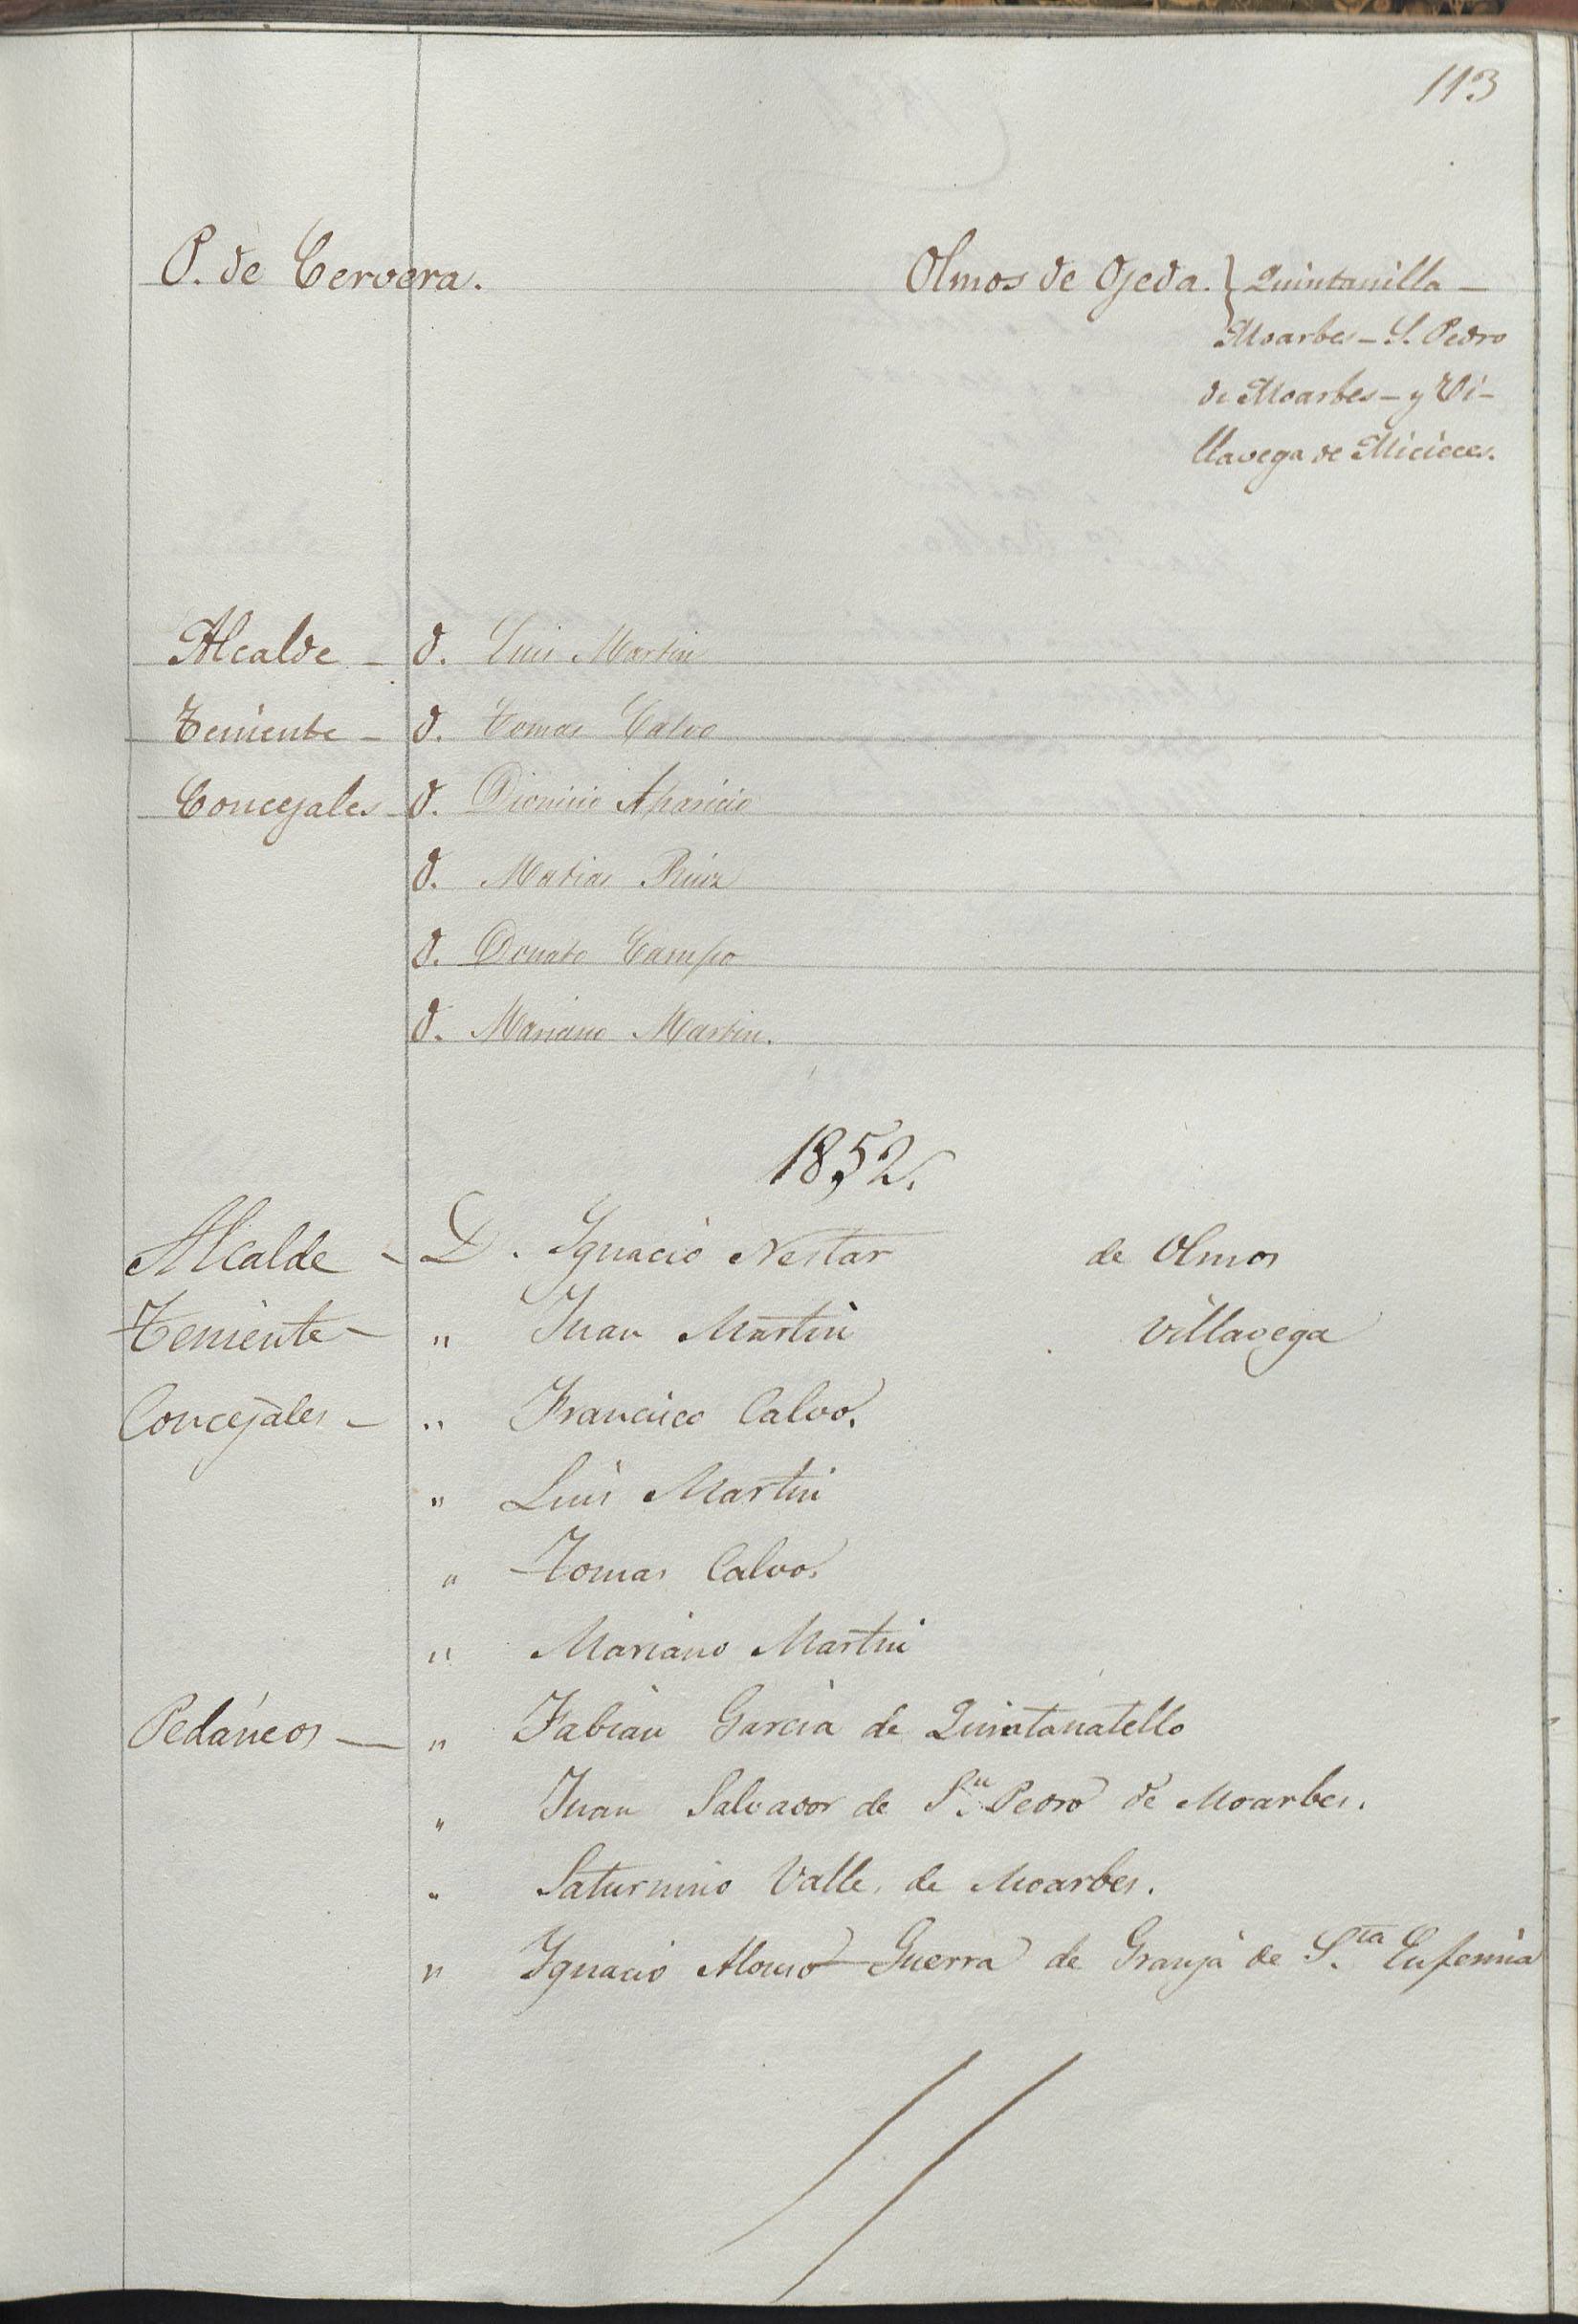 113
P. de Cervera. Olmos de Ojeda. } Quintanilla –
Moarbes – S. Pedro
de Moarbes – y Vi–
llavega de Micieces.
Alcalde – D. Luis Martin
Teniente – D. Tomas Calvo
Concejales – D. Dionisio Aparicio
D. Matias Ruiz
D. Donato Campo
D. Mariano Martin.
1852.
Alcalde – D. Ygnacio Nestar de Olmos
Teniente – " Juan Martin Villavega
Concejales – " Francisco Calvo.
" Luis Martin
" Tomas Calvo.
" Mariano Martin
Pedáneos — " Fabian Garcia de Quintanatello
" Juan Salvador de Sn. Pedro de Moarbes.
" Saturnino Valle, de Moarbes.
" Ygnacio Alonso Guerra de Granja de Sta. Eufemia